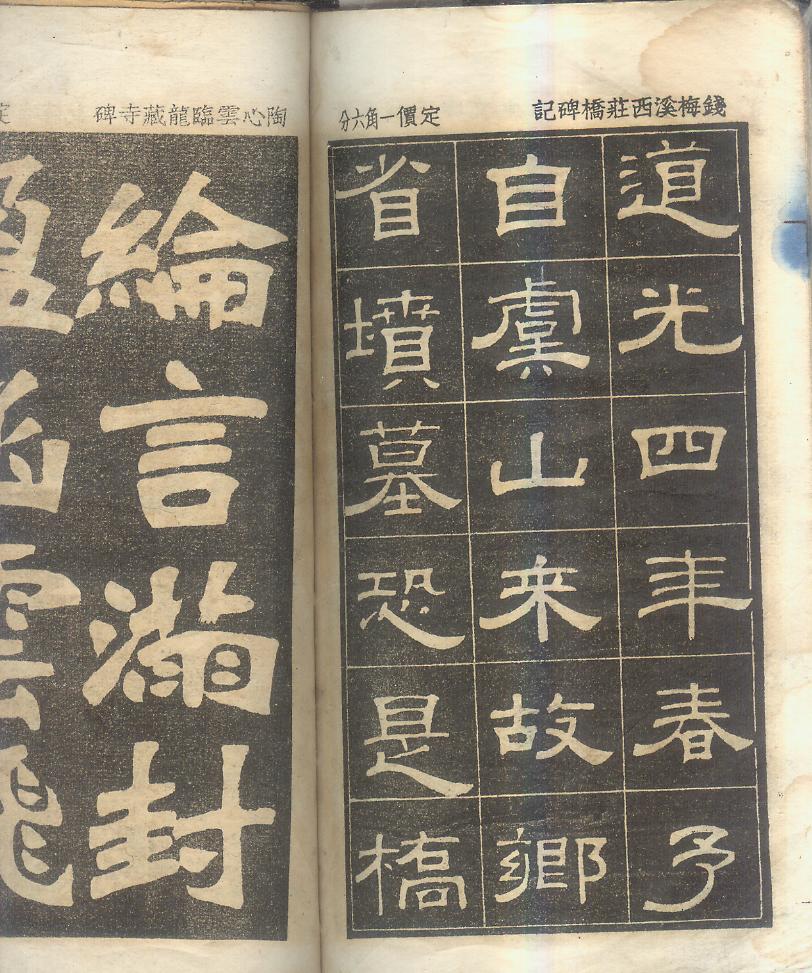 錢梅溪西莊橋碑記
定價一角六分
道光四年春予
自虞山来故鄉
省墳墓恐是橋
陶心雲臨龍藏寺碑
綸言滿封